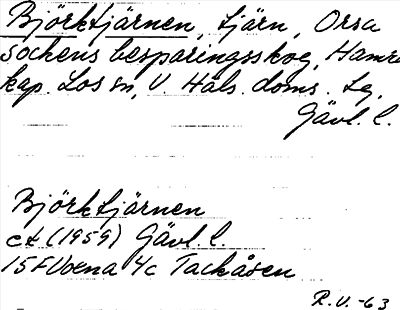 Björktjärnen, tjärn, Orsa
sockens besparingsskog, Hamra
kap. Los sn, V. Häls. doms. tg,
Gävl. l.
Björktjärnen
ek (1959) Gävl. l.
15F Voxna 4c Tackåsen
R.V. -63